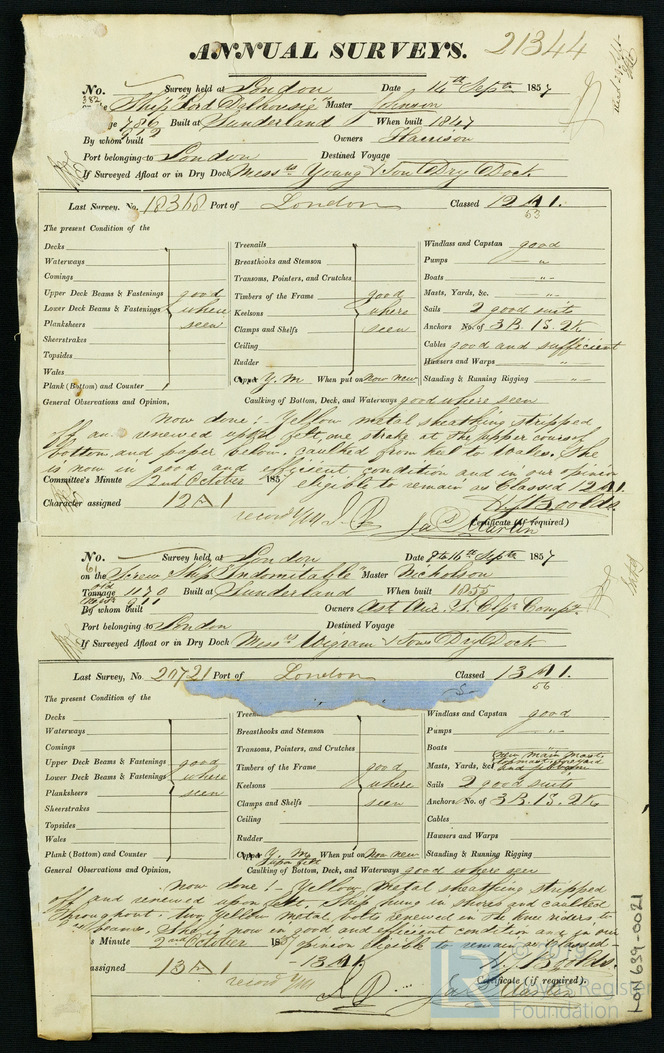 ANNUAL SURVEYS. 21344
No. Survey held at London Date 14th Septr 1857
382 on the Ship "Lord Dalhousie" Master Johnson
786 Built at Sunderland When built 1847
912
By whom built Owners Harrison
Port belonging to London Destined Voyage
If Surveyed Afloat or in Dry Dock Messrs Young & Son Dry Dock
Last Survey. No. 18368 Port of London Classed 12 A 1.
63
The present Condition of the
Decks
Waterways
Comings
Upper Deck Beams & Fastenings good
Lower Deck Beams & Fastenings where
Planksheers seen
Sheerstrakes
Topsides
Wales
Plank (Bottom) and Counter
Treenails
Breasthooks and Stemson
Transoms, Pointers, and Crutches
Timbers of the Frame good
Keelsons where
Clamps and Shelfs seen
Ceiling
Rudder
Copper Y. M When put on Now new
Windlass and Capstan good
Pumps "
Boats "
Masts, Yards, &c. "
Sails 2 good suits
Anchors No. of 3 B. 1 S. 2 K
Cables good and sufficient
Hawsers and Warps "
Standing & Running Rigging "
General Observations and Opinion, Caulking of Bottom, Deck, and Waterways good where seen
Now done :- Yellow metal sheathing stripped
off and renewed upon felt, one strake at the upper course of
bottom, and paper below. caulked from keel to Wales. She
is now in good and efficient condition and in our opinion
Committee's Minute 2nd October 1857 eligible to remain as Classed 12 A 1.
Character assigned 12 A 1
record YM
Jas Martin
Certificate (if required)
No. Survey held at London Date 8 to 16th Septr 1857
61 on the Screw Ship "Indomitable" Master Nicholson
Tonnage old 1170 Built at Sunderland When built 1855
By whom built Owners
Port belonging to London Destined Voyage
If Surveyed Afloat or in Dry Dock Messrs Wigram & Sons Dry Dock
Last Survey, No. 20721 Port of London Classed 13 A 1.
56
The present Condition of the
Decks
Waterways
Comings
Upper Deck Beams & Fastenings good
Lower Deck Beams & Fastenings where
Planksheers seen
Sheerstrakes
Topsides
Wales
Plank (Bottom) and Counter
Treenails
Breasthooks and Stemson
Transoms, Pointers, and Crutches
Timbers of the Frame good
Keelsons where
Clamps and Shelfs seen
Ceiling
Rudder
Copper Y. M. upon felt When put on Now new
Windlass and Capstan good
Pumps "
Boats "
New main mast
Masts, Yards, &c
Sails 2 good suits
Anchors No. of 3 B. 1 S. 2 K
Cables
Hawsers and Warps
Standing & Running Rigging
General Observations and Opinion, Caulking of Bottom, Deck, and Waterways good where seen
Now done :- Yellow metal sheathing stripped
off and renewed upon felt. Ship hung in shores and caulked
throughout. two Yellow metal bolts renewed in the knee riders, to
beams. She is now in good and efficient condition and in our
s Minute 2nd October 1857 opinion eligible to remain as Classed
assigned 13 A 1 - 13 A 1.
record YM
Certificate (if required).
LON 639-0021
© 2019
Lloyd's Register
Foundation